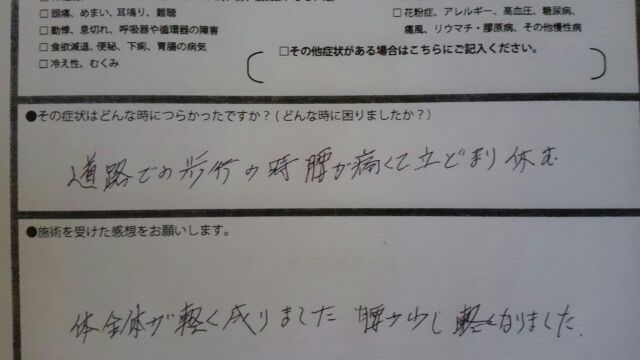 □頭痛、めまい、耳鳴り、難聴
□動悸、息切れ、呼吸器や循環器の障害
□食欲減退、便秘、下痢、胃腸の病気
□冷え性、むくみ
□花粉症、アレルギー、高血圧、糖尿病、
痛風、リウマチ・膠原病、その他慢性病
□その他症状がある場合はこちらにご記入ください。
●その症状はどんな時につらかったですか？(どんな時に困りましたか？)
道路での歩行の時腰が痛くて立どまり休む
●施術を受けた感想をお願いします。
体全体が軽く成りました 腰が少し軽くなりました.